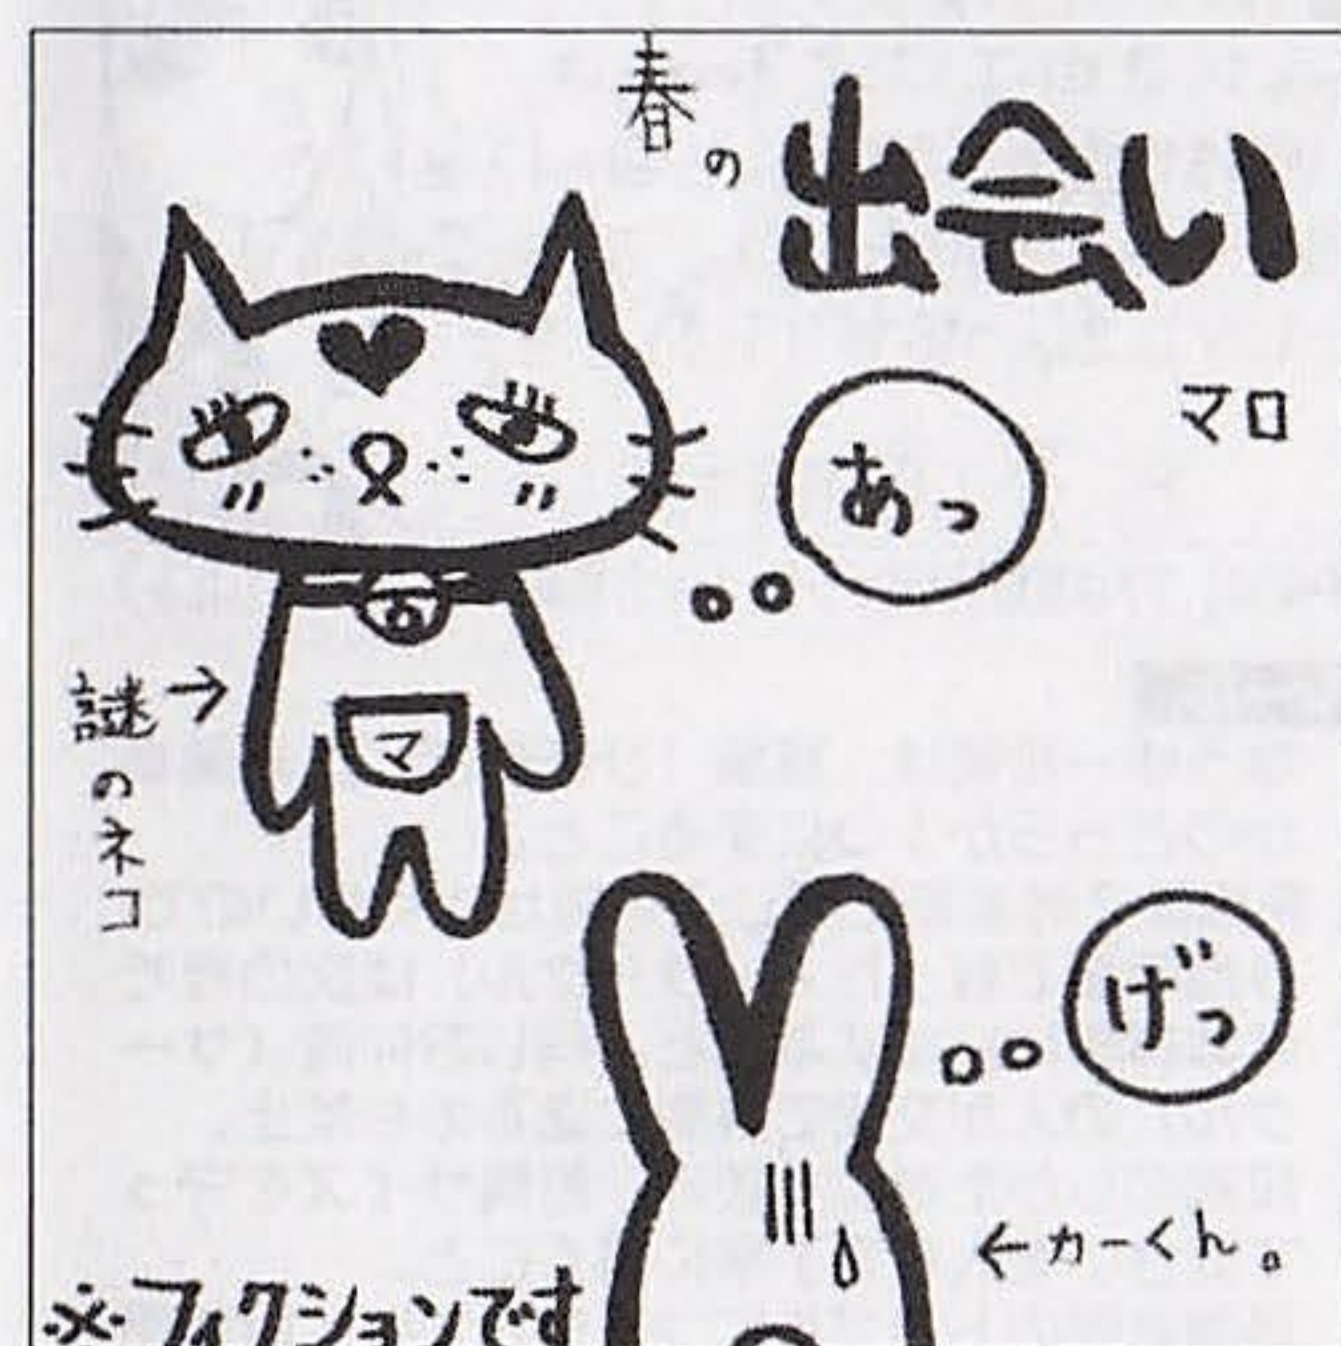 春の出会い
マロ
あっ
謎のネコ→
マ
げっ
←カーくん。
※フィクションです